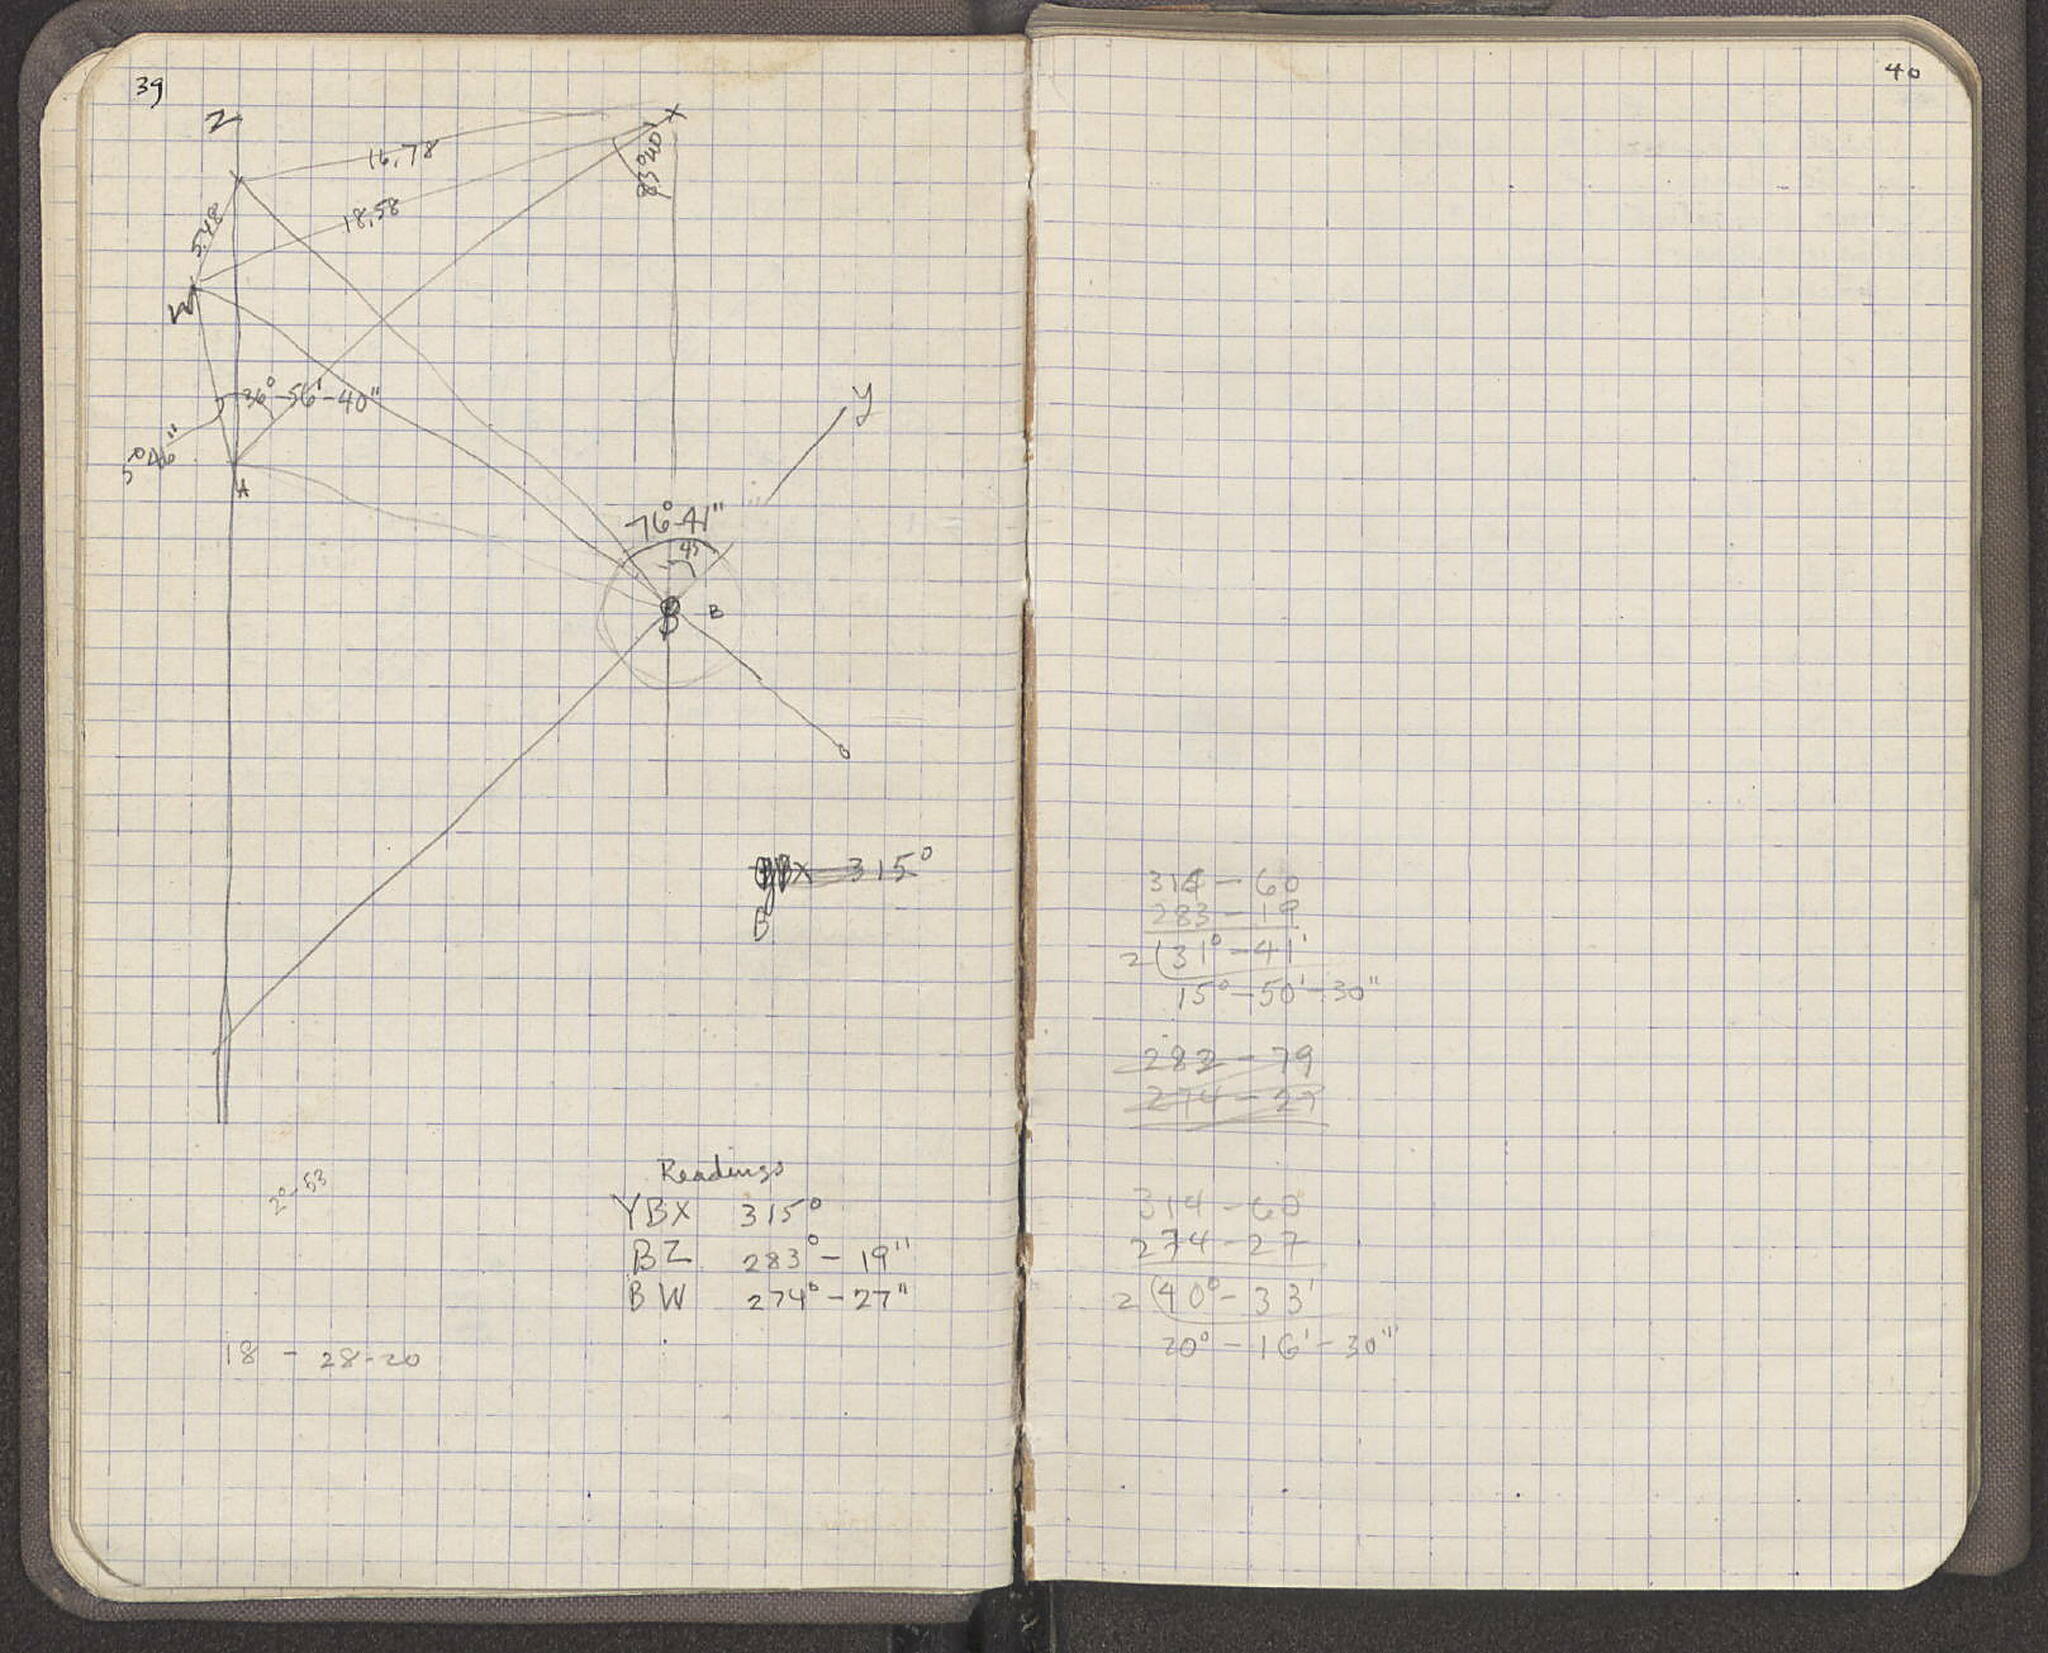 39
Z
X
16,78
83°40
18,58
5.48
W
36°-56'-40"
Y
5°46"
A
76°-41"
45
B
B
X 315°
B
Readings
YBX 315°
BZ 283°-19"
BW 274°-27"
2°-53
18 - 28-20
40
314-60
283-19
2(31°-41'
15°-50'-30"
282-79
274-27
314-60
274-27
2(40°-33'
20°-16'-30"